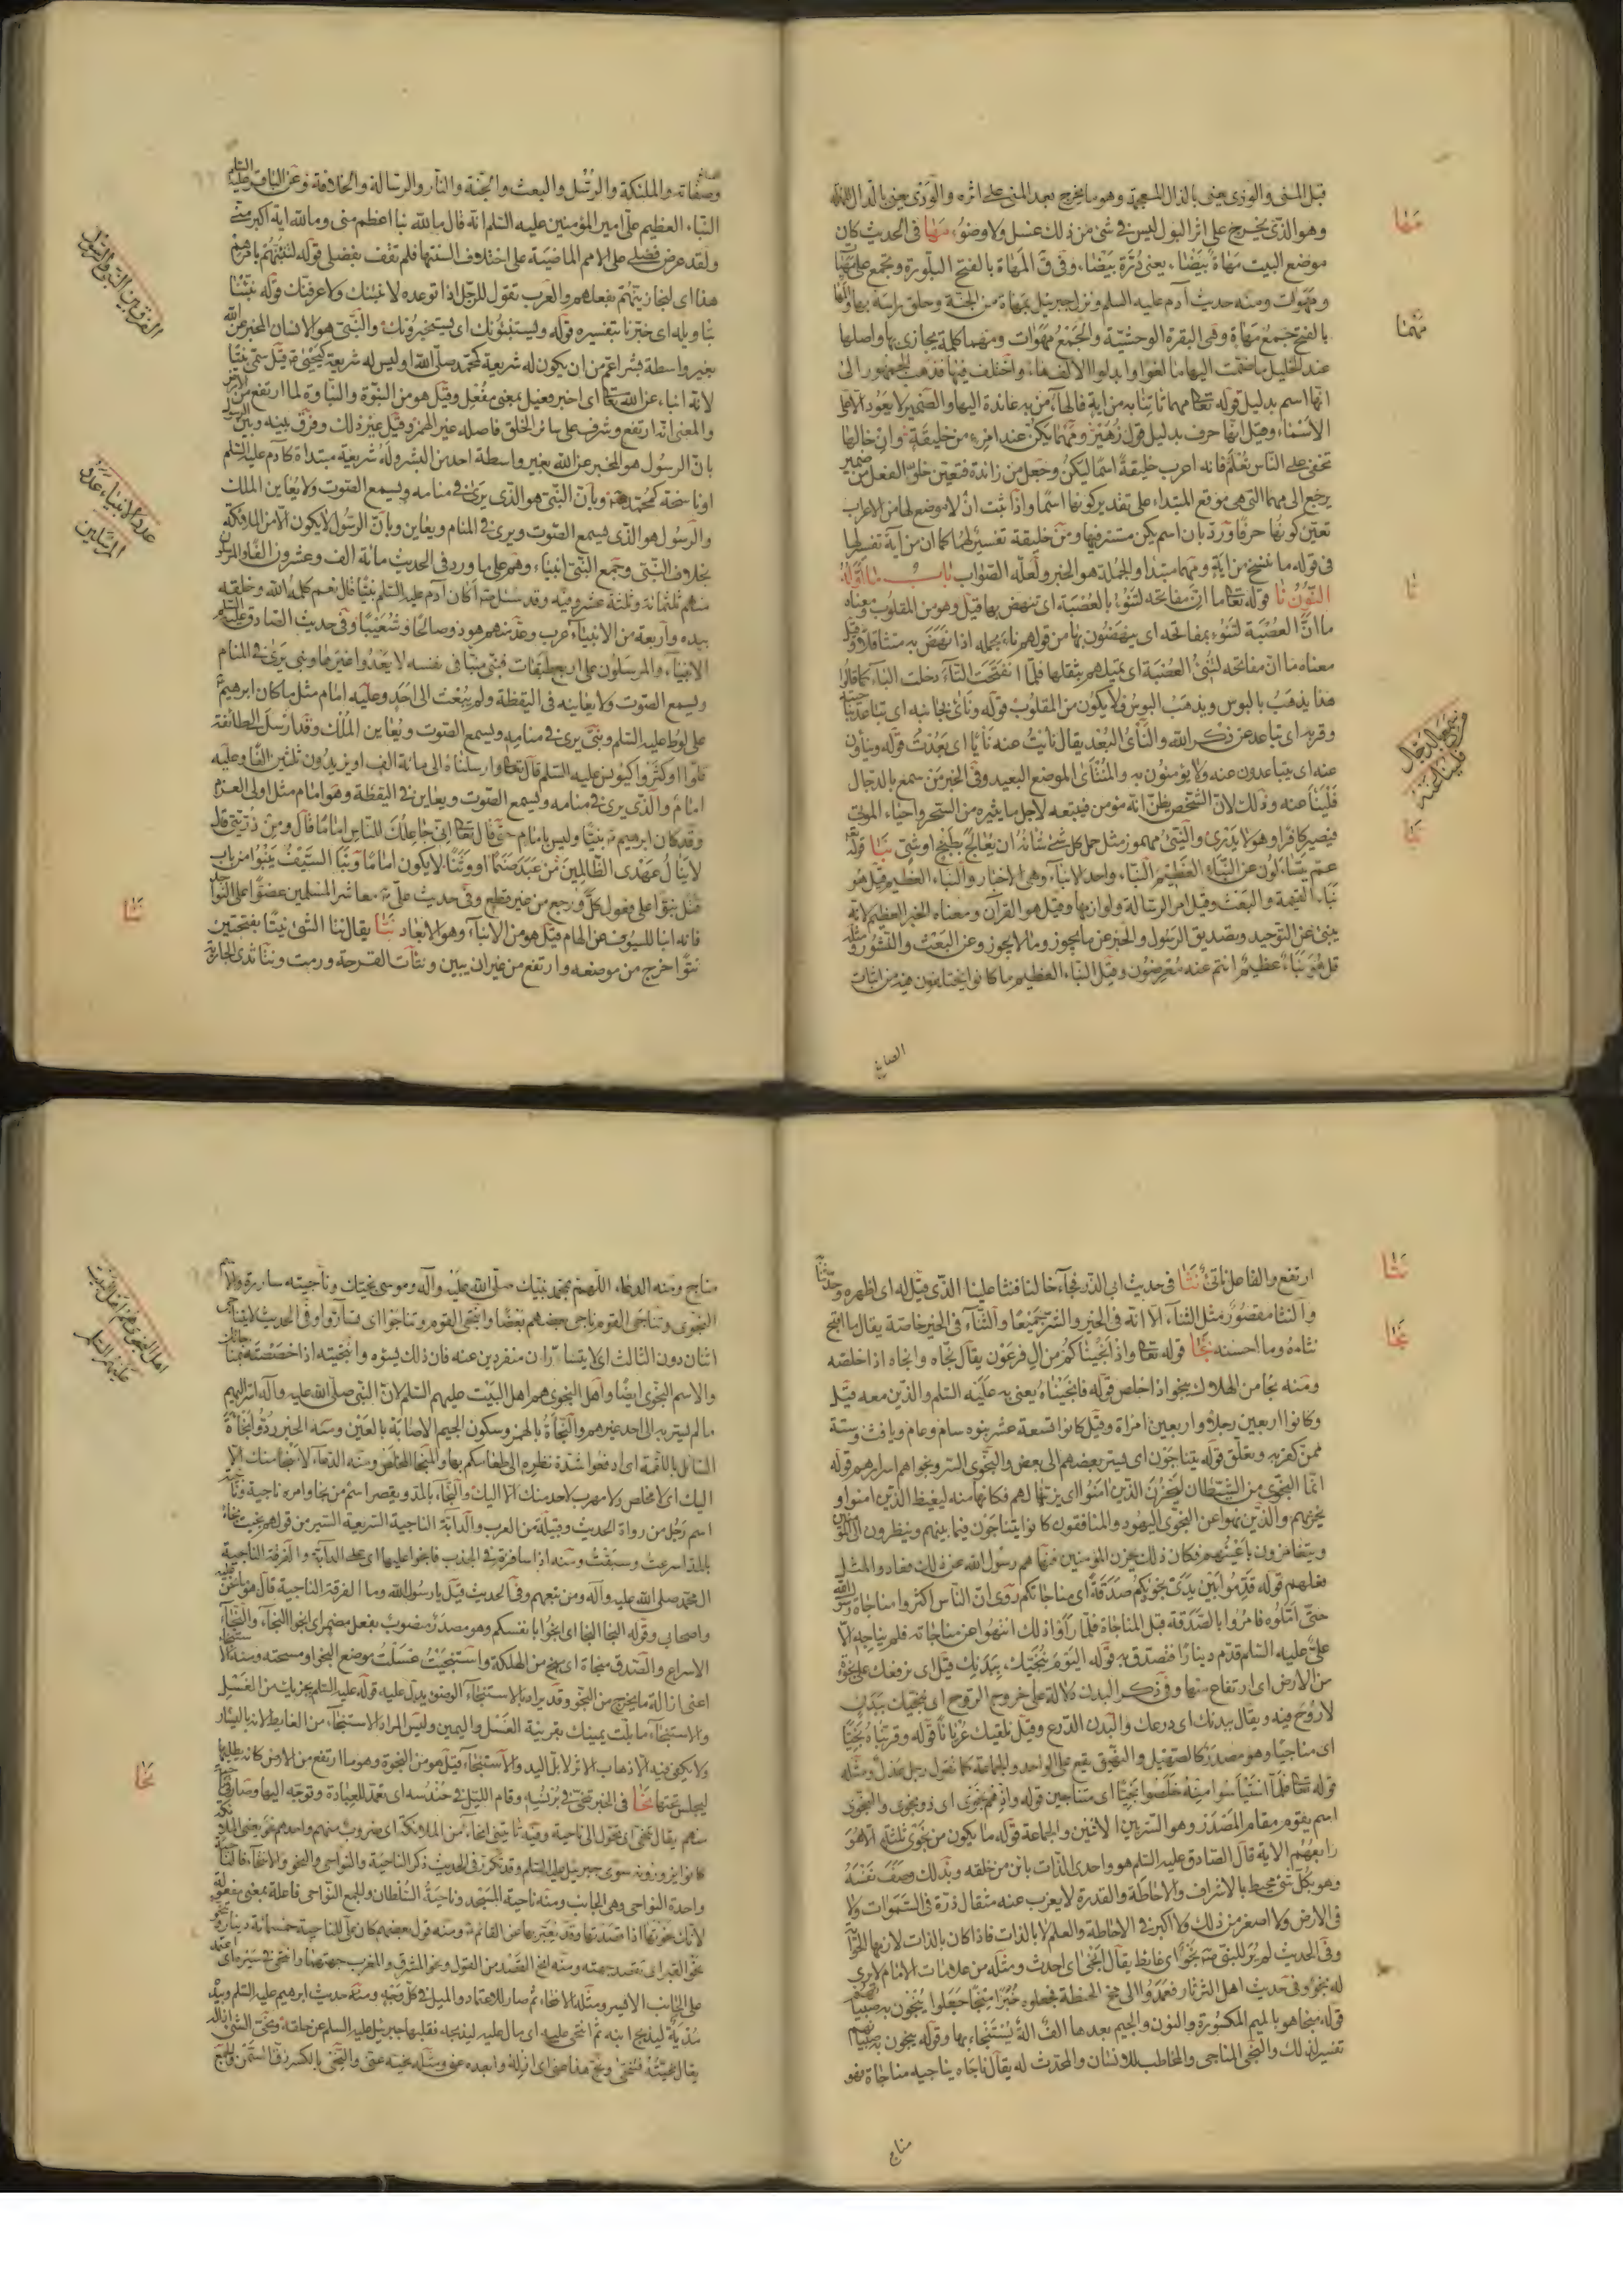 قبل المنى والوذى يعنى بالذال المعجمة وهو ما يخرج بعد المنى على اثره والودى يعنى بالدال المهملة
وهو الذى يخرج على اثر البول ليس فى شئ من ذلك غسل ولا وضوء مها فى الحديث كان
موضع البيت مهاة بيضاء يعنى درة بيضاء وفى ق المهاة بالفتح البلورة ويجمع على مهيات
ومهوات ومنه حديث آدم عليه السلم ونزل جبرئيل بمهاة من الجنة وحلق راسه بها والمها
بالفتح جمع مهاة وهى البقرة الوحشية والجمع مهوات ومهما كلمة يجازى بها واصلها
عند الخليل ما ضمت اليها ما لغوا وابدلوا الالف هاء واختلف فيها فذهب الجمهور الى
انها اسم بدليل قوله تعالى مهما تاتنا به من اية فالهاء من به عائدة اليها والضمير لا يعود الا على
الاسماء وقيل انها حرف بدليل قول زهير ومهما يكن عند امرء من خليقة وان خالها
تخفى على الناس تعلم فانه اعرب خليقة اسما ليكن وجعل من زائدة فتعين خلو الفعل من ضمير
يرجع الى مهما التى هى موقع المبتداء على تقدير كونها اسما واذا ثبت ان لا موضع لها من الاعراب
تعين كونها حرفا ورد بان اسم يكن مستتر فيها ومن خليقة تفسير لها كما ان من اية تفسير لها
فى قوله ما ننسخ من اية ومهما مبتدا والجملة هو الخبر ولعله الصواب باب ما اوله
النون نا قوله تعالى ما ان مفاتحه لتنوء بالعصبة اى تنهض بها قيل وهو من المقلوب ومعناه
ما ان العصبة لتنوء بمفاتحه اى ينهضون بها من قولهم ناء بحمله اذا نهض به متثاقلا وقيل
معناه ما ان مفاتحه لتنئ العصبة اى تميلهم بثقلها فلما انفتحت التاء دخلت الباء كما قالوا
هذا يذهب بالبوس ويذهب البوس فلا يكون من المقلوب قوله ونأى بجانبه اى تباعد بناحيته
وقربه اى تباعد عن ذكر الله والنأى البعد يقال نأيت عنه نأيا اى بعدت قوله وينأون
عنه اى يتباعدون عنه ولا يؤمنون به والمنتأى الموضع البعيد وفى الخبر من سمع بالدجال
فلينأ عنه وذلك لان الشخص يظن انه مؤمن فيتبعه لاجل ما يثيره من السحر واحياء الموتى
فيصير كافرا وهو لا يدرى والنيئ مهموز مثل حمل كل شئ شانه ان يعالج بطبخ او شئ نبا قوله
عم يتساءلون عن النباء العظيم النباء واحد الانباء وهى الاخبار والنباء العظيم قيل هو
نباء القيمة والبعث وقيل امر الرسالة ولوازمها وقيل هو القرآن ومعناه الخبر العظيم لانه
ينبئ عن التوحيد وتصديق الرسول والخبر عن ما يجوز وما لا يجوز وعن البعث والنشور ومثله
قل هو نباء عظيم انتم عنه معرضون وقيل النباء العظيم ما كانوا يختلفون فيه من اثبات
الصانع
مها
مهما
نا
من سمع بالدجال
فلينأ عنه
نبا
وصفاته والملئكة والرسل والبعث والجنة والنار والرسالة والخلافة وعن الباقر عليه السلم
النباء العظيم على امير المؤمنين عليه السلم انه قال ما لله نبا اعظم منى وما لله اية اكبر منى
ولقد عرض فضلى على الامم الماضية على اختلاف السنتها فلم تقف بفضلى قوله لتنبئنهم بامرهم
هذا اى لتجازينهم بفعلهم والعرب تقول للرجل اذا توعده لانبئنك ولاعرفنك قوله نبئنا
بتاويله اى خبرنا بتفسيره قوله ويستنبؤنك اى يستخبرونك والنبى هو الانسان المخبر عن الله
بغير واسطة بشر اعم من ان يكون له شريعة كمحمد صلى الله او ليس له شريعة كيحيى قيل سمى نبيا
لانه انباء عن الله تعالى اى اخبر وفعيل بمعنى مفعل وقيل هو من النبوة والنباوة لما ارتفع من الارض
والمعنى انه ارتفع وشرف على سائر الخلق فاصله غير الهمز وقيل غير ذلك وفرق بينه وبين الرسول
بان الرسول هو المخبر عن الله بغير واسطة احد من البشر وله شريعة مبتداة كآدم عليه السلم
او ناسخة كمحمد وبان النبى هو الذى يرى فى منامه ويسمع الصوت ولا يعاين الملك
والرسول هو الذى يسمع الصوت ويرى فى المنام ويعاين وبان الرسول قد يكون من الملائكة
بخلاف النبى وجمع النبى انبياء وهم على ما ورد فى الحديث مائة الف وعشرون الفا والمرسلون
منهم ثلثمائة وثلثة عشر وفيه وقد سئل أكان آدم عليه السلم نبيا قال نعم كلمه الله وخلقه
بيده واربعة من الانبياء عرب وعد منهم هود وصالحا وشعيبا وفى حديث الصادق عليه السلم
الانبياء والمرسلون على اربع طبقات فنبى منبا فى نفسه لا يعدوا غيرها ونبى يرى فى المنام
ويسمع الصوت ولا يعاينه فى اليقظة ولم يبعث الى احد وعليه امام مثل ما كان ابرهيم
على لوط عليه السلم ونبى يرى فى منامه ويسمع الصوت ويعاين الملك وقد ارسل الى طائفة
قلوا او كثروا كيونس عليه السلم قال تعالى وارسلناه الى مائة الف او يزيدون ثلثين الفا وعليه
امام والذى يرى فى منامه ويسمع الصوت ويعاين فى اليقظة وهو امام مثل اولى العزم
وقد كان ابرهيم نبيا وليس بامام حتى قال تعالى انى جاعلك للناس اماما قال ومن ذريتى قال
لا ينال عهدى الظالمين من عبد صنما او وثنا لا يكون اماما ونبا السيف ينبوا من باب
قتل نبوا على فعول كل ورجع من غير قطع وفى حديث على معاشر المسلمين عضوا على النواجد
فانه انبا للسيوف عن الهام قيل هو من الانباء وهو الابعاد نتا يقال نتا الشئ نيتا بفتحتين
نتوا خرج من موضعه وارتفع من غير ان يبين ونتأت القرحة ورمت ونتا ثدى الجارية
الفرق بين النبى والرسول
عدد الانبياء وعدد
المرسلين
نتا
ارتفع والفاعل ناتئ نثا فى حديث ابى الذر فجاء خالنا فنثا علينا الذى قيل له اى اظهره وحدثنا
والنثا مقصور مثل الثناء الا انه فى الخير والشر جميعا والثناء فى الخير خاصة يقال ما اقبح
نثاءه وما احسنه نجا قوله تعالى واذ انجيناكم من ال فرعون يقال نجاه وانجاه اذا اخلصه
ومنه نجا من الهلاك ينجو اذا خلص قوله فانجيناه يعنى به عليه السلم والذين معه قيل
وكانوا اربعين رجلا واربعين امراة وقيل كانوا تسعة عشر بنوه سام وحام ويافث وستة
ممن كفر به وتعلق قوله يتناجون اى يسر بعضهم الى بعض والنجوى السر ونجواهم اسرارهم قوله
انما النجوى من الشيطان ليحزن الذين امنوا اى يزينها لهم فكانها منه ليغيظ الذين امنوا و
يحزنهم والذين نهوا عن النجوى اليهود والمنافقون كانوا يتناجون فيما بينهم وينظرون الى المؤمنين
ويتغامزون باعينهم فكان ذلك يحزن المؤمنين فنهاهم رسول الله عن ذلك فعادوا لمثل
فعلهم قوله قدموا بين يدى نجويكم صدقة اى مناجاتكم روى ان الناس اكثروا مناجاة رسول الله
حتى املوه فامروا بالصدقة قبل المناجاة فلما راوا ذلك انتهوا عن مناجاته فلم يناجه الا
على عليه السلم قدم دينارا فتصدق به قوله اليوم ننجيك ببدنك قيل اى نرفعك على نجوة
من الارض اى ارتفاع منها وفى ذكر البدن دلالة على خروج الروح اى ننجيك ببدن
لا روح فيه ويقال ببدنك اى درعك والبدن الدرع وقيل نلقيك عريانا قوله وقربناه نجيا
اى مناجيا وهو مصدر كالصهيل والنهيق يقع على الواحد والجماعة كما تقول رجل عدل ومثله
قوله تعالى فلما استيأسوا منه خلصوا نجيا اى متناجين قوله واذ هم نجوى اى ذو نجوى والنجوى
اسم يقوم مقام المصدر وهو السر بين الاثنين والجماعة قوله ما يكون من نجوى ثلثة الا هو
رابعهم الاية قال الصادق عليه السلم هو واحدى الذات بائن من خلقه وبذلك وصف نفسه
وهو بكل شئ محيط بالاشراف والاحاطة والقدرة لا يعزب عنه مثقال ذرة فى السموات ولا
فى الارض ولا اصغر من ذلك ولا اكبر فى الاحاطة والعلم لا بالذات فاذا كان بالذات لازمها الحواية
وفى الحديث لم ير للنبى نجو اى غائط يقال انجى اى احدث ومثله من علامات الامام لا يرى
له نجو وفى حديث اهل الثرثار فعمدوا الى مخ الحنطة فجعلوه خبزا منجا جعلوا ينجون به صبيانهم
قوله منجا هو بالميم المكسورة والنون والجيم بعدها الف الة يستنجاء بها وقوله ينجون به صبيانهم
تفسير لذلك والنجى المناجى والمخاطب للانسان والمحدث له يقال ناجاه يناجيه مناجاة فهو
مناج
نثا
نجا
مناج ومنه الدعاء اللهم بمحمد نبيك صلى الله عليه وآله وموسى نجيك وناجيته ساررته والاسم
النجوى وتناجى القوم ناجى بعضهم بعضا وانتجى القوم وتناجوا اى تساروا وفى الحديث لا يتناجى
اثنان دون الثالث اى لا يتسارران منفردين عنه فان ذلك يسؤه وانتجيته اذا خصصته بمناجاتك
والاسم النجوى ايضا واهل النجوى هم اهل البيت عليهم السلم لان النبى صلى الله عليه وآله اسر اليهم
ما لم يسر به الى احد غيرهم والنجأة بالهمز وسكون الجيم الاصابة بالعين ومنه الخبر ردوا نجأة
السائل باللقمة اى ادفعوا شدة نظره الى طعامكم بها والمنجا المخلص ومنه الدعاء لا منجا منك الا
اليك اى لا مخلص ولا مهرب لاحد منك الا اليك والنجاء بالمد ويقصر اسم من نجا وامره ناجية
اسم رجل من رواة الحديث وقبيلة من العرب والدابة الناجية السريعة السير من قولهم نجيت نجاء
بالمد اسرعت وسبقت ومنه اذا سافرت فى الجدب فانجوا عليها اى على الدابة والفرقة الناجية
ال محمد صلى الله عليه وآله ومن تبعهم وفى الحديث قيل يا رسول الله وما الفرقة الناجية قال هو ما نحن عليه
واصحابى وقوله النجا النجا اى انجوا بانفسكم وهو مصدر منصوب بفعل مضمر اى انجوا النجاء والنجاء
الاسراع والصدق منجاة اى منج من الهلكة واستنجيت غسلت موضع النجو او مسحته ومنه الاستنجاء
اعنى ازالة ما يخرج من النجو وقد يراد بالاستنجاء الوضوء يدل عليه قوله عليه السلم يجزيك من الغسل
والاستنجاء ما بلت يمينك بقرينة الغسل واليمين وليس المراد الاستنجاء من الغائط لانه باليسار
ولا يكفى فيه الا ذهاب الاثر لا بل اليد والاستنجاء قيل هو من النجوة وهو ما ارتفع من الارض كانه يطلبها
ليجلس تحتها نحا فى الخبر تنحى فى برنسه وقام الليل فى حندسه اى تعمد للعبادة وتوجه اليها وصار فى ناحية
منهم يقال تنحى اى تحول الى ناحية وفيه تاتينى انحاء من الملائكة اى ضروب منهم واحدهم نحو يعنى الملائكة
كانوا يزورونه سوى جبرئيل عليه السلم وقد تكرر فى الحديث ذكر الناحية والنواحى والنحو والانتحاء فالناحية
واحدة النواحى وهى الجانب ومنه ناحية المسجد وناحية السلطان والجمع النواحى فاعلة بمعنى مفعولة
لانك نحوتها اذا قصدتها وقد يعبر بها عن القائم ومنه قول بعضهم كان على للناحية خمسمائة دينار
نحو القبر اى تقصد جهته ومنه انح القصد من القول ونحو المشرق والمغرب جهتهما وانتحى فى سيره اى اعتمد
على الجانب الايسر ومثله الانحاء ثم صار للاعتماد والميل فى كل وجه ومنه حديث ابرهيم عليه السلم وبيده
مدية ليذبح ابنه ثم انتحى عليه اى مال عليه ليذبحه فقلبها جبرئيل عليه السلم عن حلقه ونحى الشئ ازاله
يقال نحيته فتنحى ونح هذا عنى اى ازله وابعده عنى ومثله نحيته عنى والنحى بالكسر زق السمن والجمع
اهل النجوى هم اهل البيت
عليهم السلم
نحا